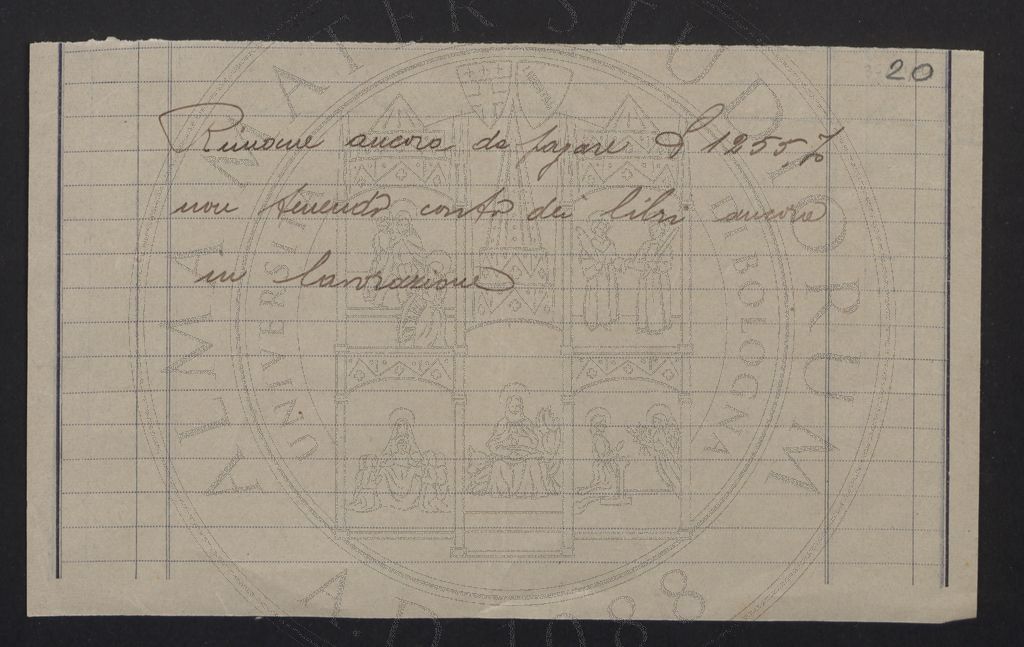 20
Rimane ancora da pagare £ 1255.%
non tenendo conto dei libri ancora
in lavorazione
ALMA MATER STUDIORUM
UNIVERSITÀ DI BOLOGNA
A.D. 1088